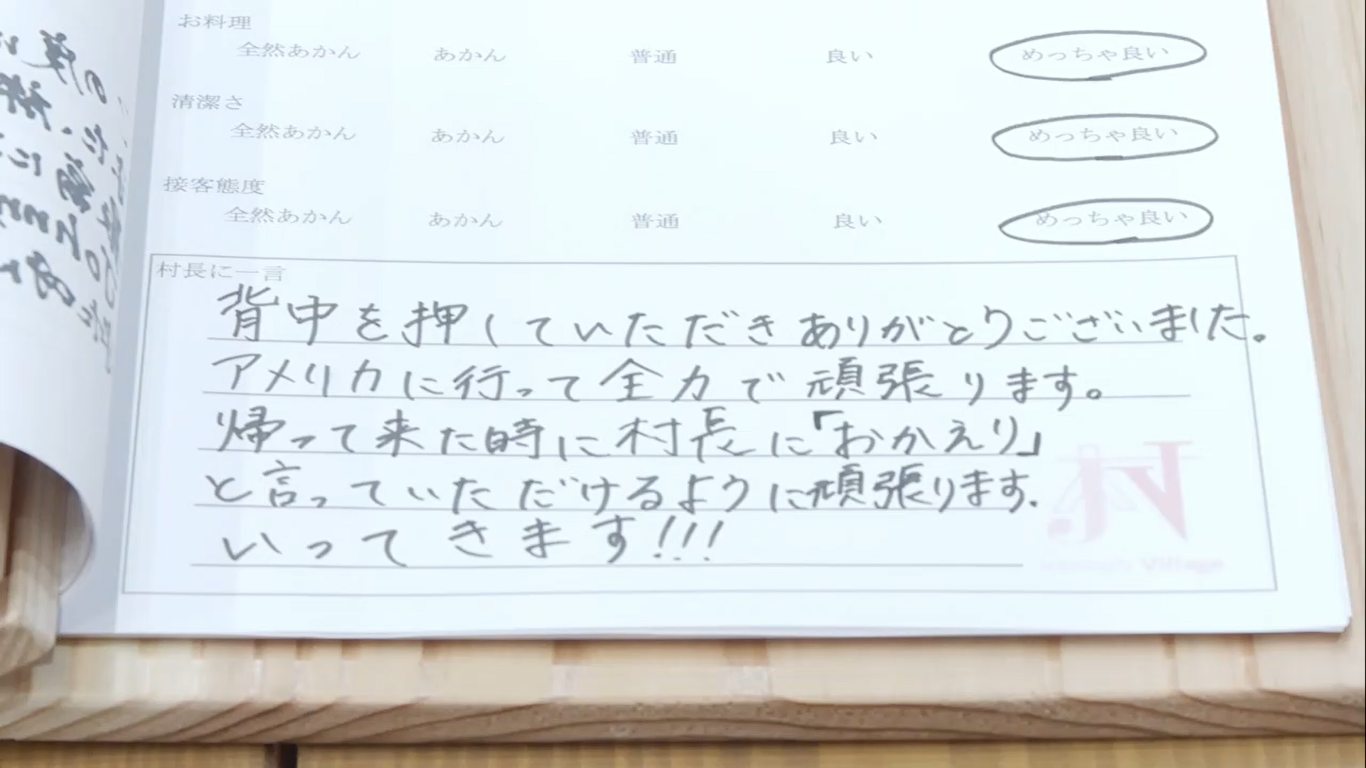 お料理
全然あかん あかん 普通 良い めっちゃ良い
清潔さ
全然あかん あかん 普通 良い めっちゃ良い
接客態度
全然あかん あかん 普通 良い めっちゃ良い
村長に一言
背中を押していただきありがとうございました。
アメリカに行って全力で頑張ります。
帰って来た時に村長に「おかえり」
と言っていただけるように頑張ります.
いってきます!!!